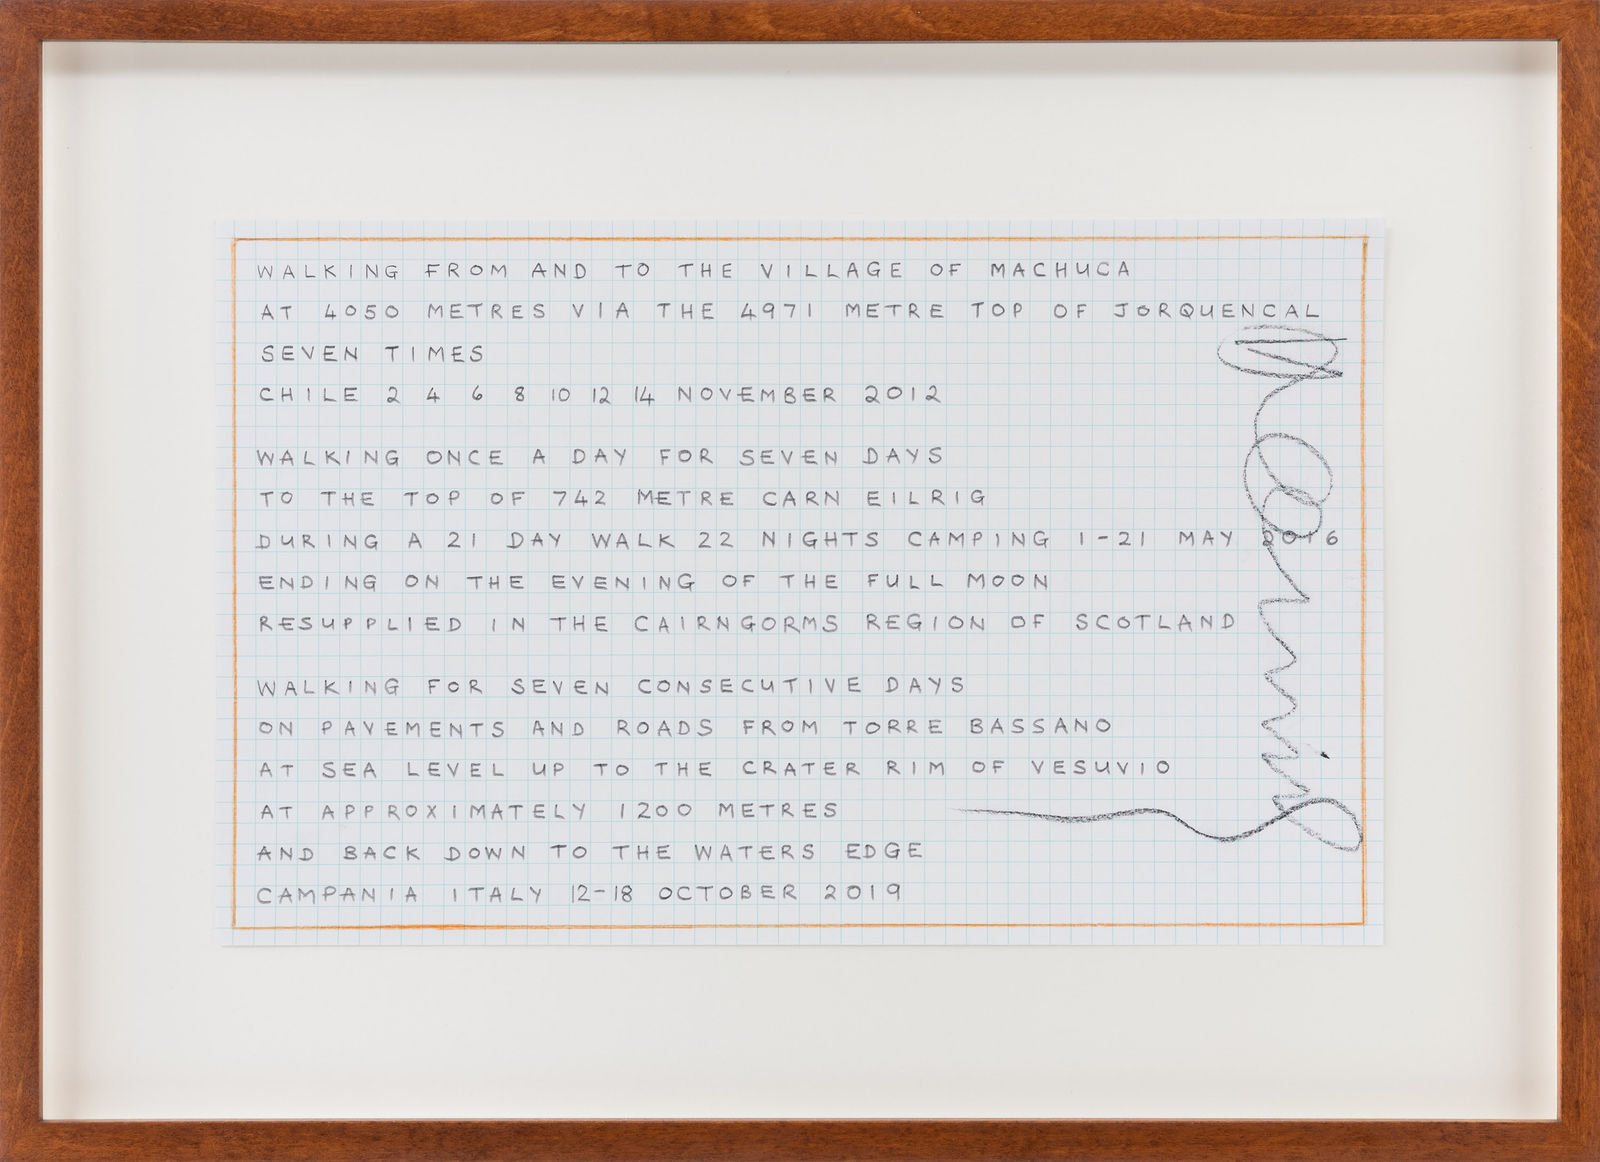 WALKING FROM AND TO THE VILLAGE OF MACHUCA
AT 4050 METRES VIA THE 4971 METRE TOP OF JORQUENCAL
SEVEN TIMES
CHILE 2 4 6 8 10 12 14 NOVEMBER 2012
WALKING ONCE A DAY FOR SEVEN DAYS
TO THE TOP OF 742 METRE CARN EILRIG
DURING A 21 DAY WALK 22 NIGHTS CAMPING 1-21 MAY
ENDING ON THE EVENING OF THE FULL MOON
RESUPPLIED IN THE CAIRNGORMS REGION OF SCOTLAND
WALKING FOR SEVEN CONSECUTIVE DAYS
ON PAVEMENTS AND ROADS FROM TORRE BASSANO
AT SEA LEVEL UP TO THE CRATER RIM OF VESUVIO
AT APPROXIMATELY 1200 METRES
AND BACK DOWN TO THE WATERS EDGE
CAMPANIA ITALY 12-18 OCTOBER 2019